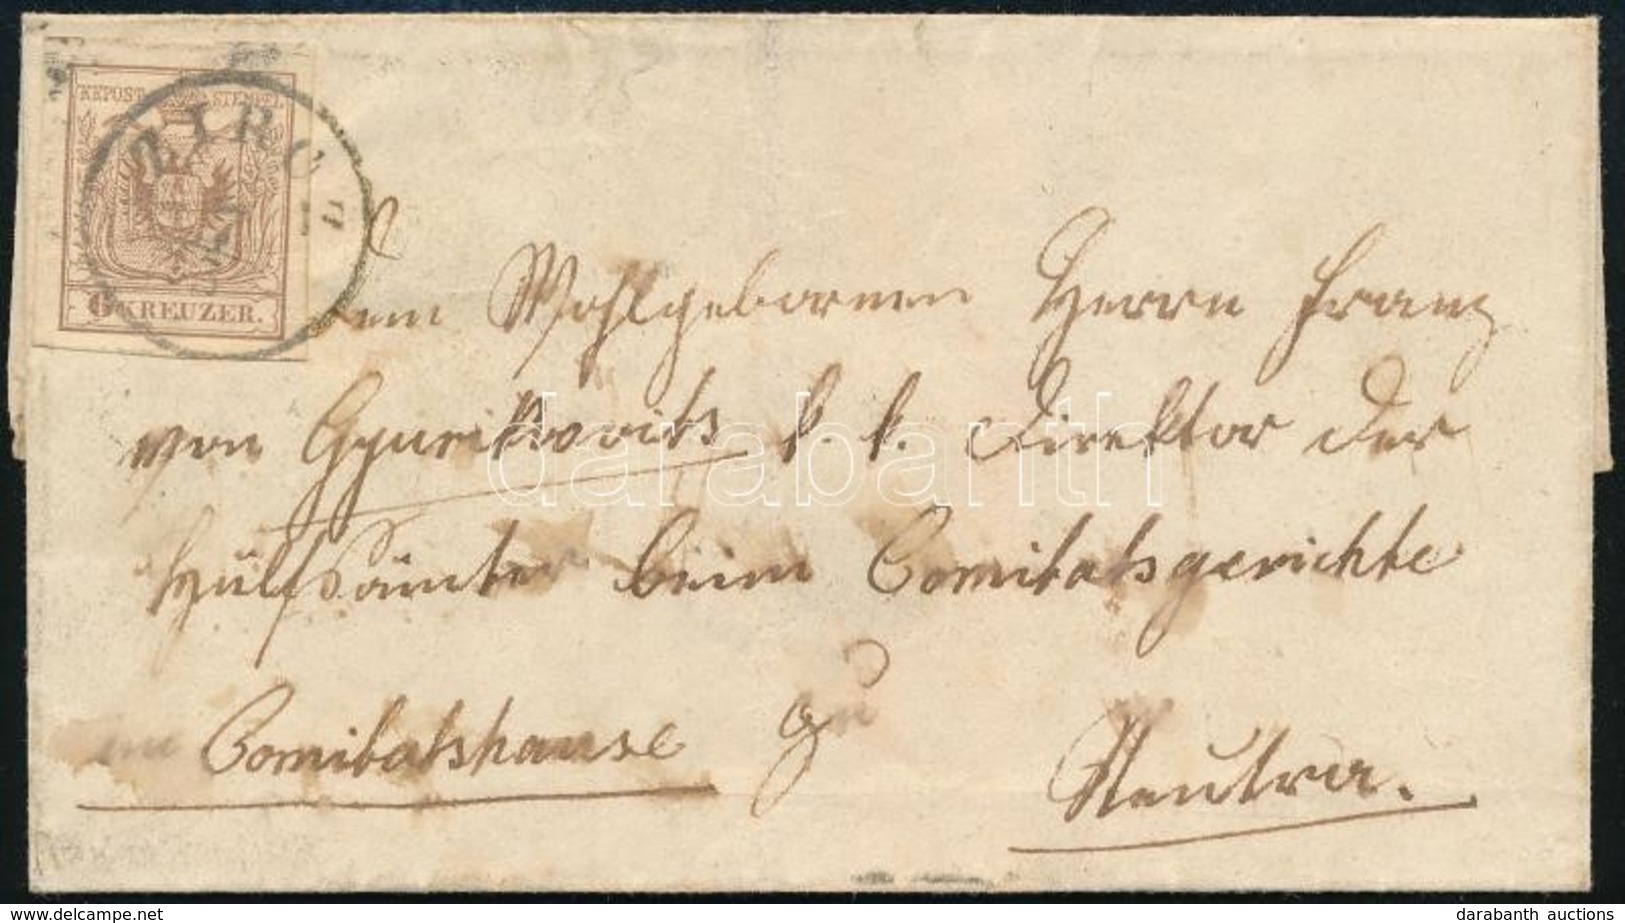 KKPOST-STEMPEL
ZIRCZ
6 KREUZER.
Dem Wohlgebornen Herrn Franz
von Gyurikovits k. k. Direktor der
Hülfsämter beim Comitatsgerichte
im Comitatshause zu
Neutra.
darabanth
delcampe.net
darabanth auctions